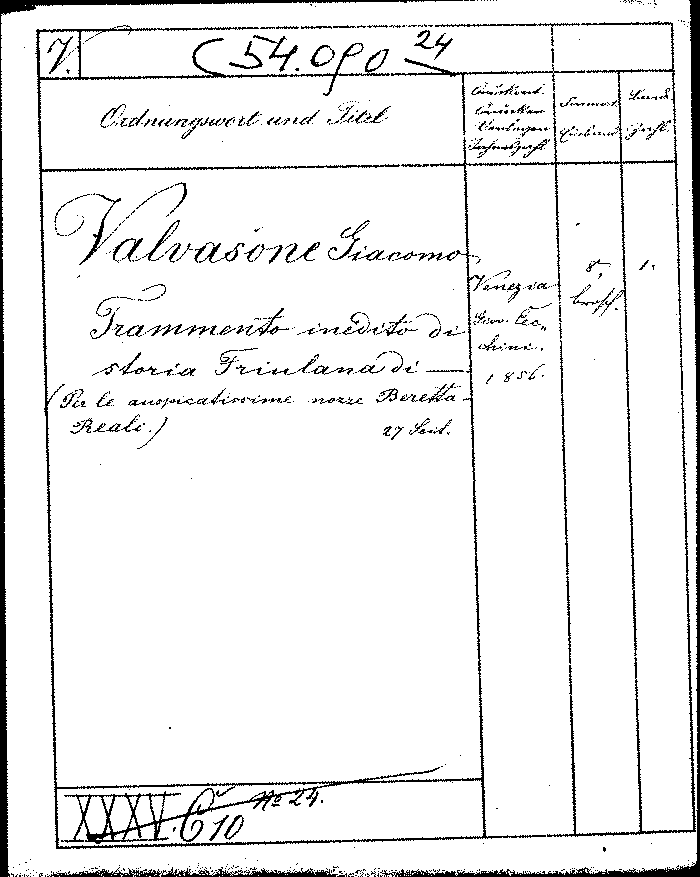 7. C 54.090 24
Ordnungswort und Titel
Druckort.
Drucker
Verleger
Jahreszahl
Format
Einband
Band-
Zahl.
Valvasone Giacomo
Frammento inedito di
storia Friulana di —
(Per le auspicatissime nozze Beretta-
Reali.) 27 Seit.
Venezia
Giov. Cec-
chini.
1856.
8,
brosch.
1.
XXXV. C 10 No 24.